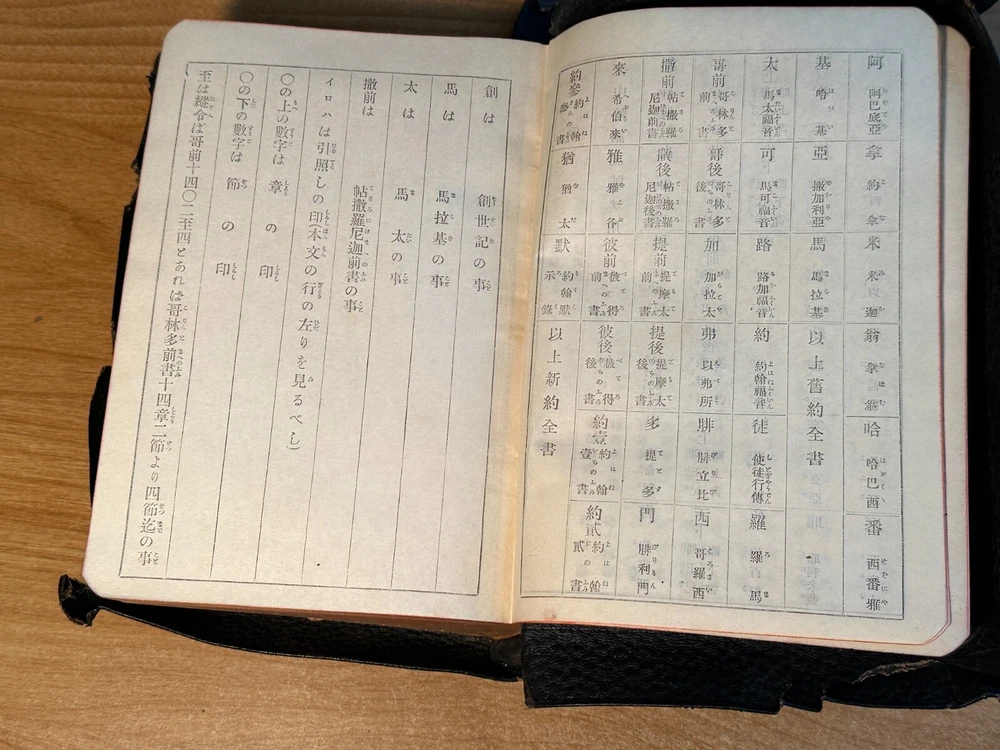 阿 阿巴底亞 拿 約拿 米 米迦 翁 拿翁 哈 哈巴谷 番 西番雅
基 哈基 亞 撒加利亞 馬 馬拉基 以上舊約全書
太 馬太福音 可 馬可福音 路 路加福音 約 約翰福音 徒 使徒行傳 羅 羅馬
哥前 哥林多前書 哥後 哥林多後書 加 加拉太 弗 以弗所 腓 腓立比 西 哥羅西
撒前 帖撒羅尼迦前書 撒後 帖撒羅尼迦後書 提前 提摩太前書 提後 提摩太後書 多 提多 門 腓利門
來 希伯來 雅 雅谷 彼前 彼得前書 彼後 彼得後書 約壹 約翰壹書 約貳 約翰貳書
約參 約翰參書 猶 猶太 默 約翰默示錄 以上新約全書
創は 創世記の事
馬は 馬拉基の事
太は 馬太の事
撒前は 帖撒羅尼迦前書の事
イロハは引照しの印(本文の行の左りを見るべし)
〇の上の數字は章の印
〇の下の數字は節の印
至は縱令ば哥前十四〇二至四とあれは哥林多前書十四章二節より四節迄の事